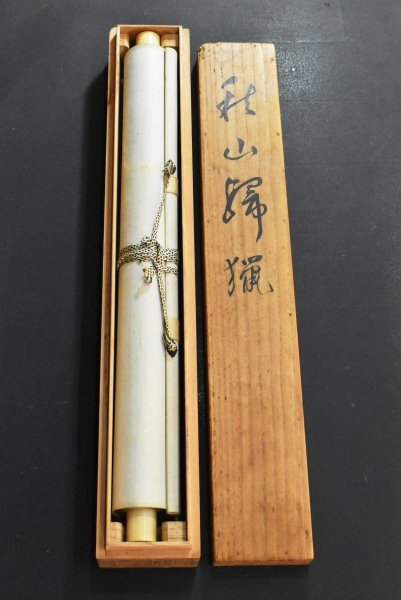 秋山歸獵